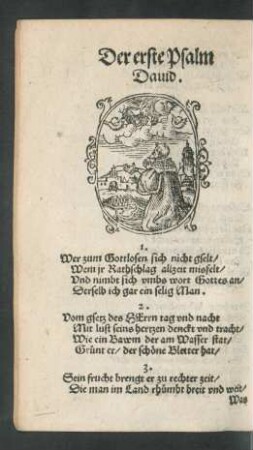 Der erste Psalm
Dauid.
1.
Wer zum Gottlosen sich nicht gselt/
Wem jr Rathschlag allzeit misfelt/
Vnd nimbt sich vmbs wort Gottes an/
Derselb ich gar ein selig Man.
2.
Vom gsetz des HErrn tag vnd nacht
Mit lust seins hertzen denckt vnd tracht/
Wie ein Bawm der am Wasser stat/
Grünt er/ der schöne Bletter hat/
3.
Sein frucht brengt er zu rechter zeit/
Die man im Land rhümbt breit vnd weit/
Was